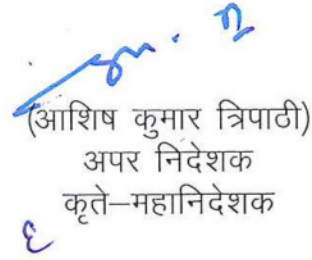 (आशिष कुमार त्रिपाठी)
अपर निदेशक
कृते–महानिदेशक